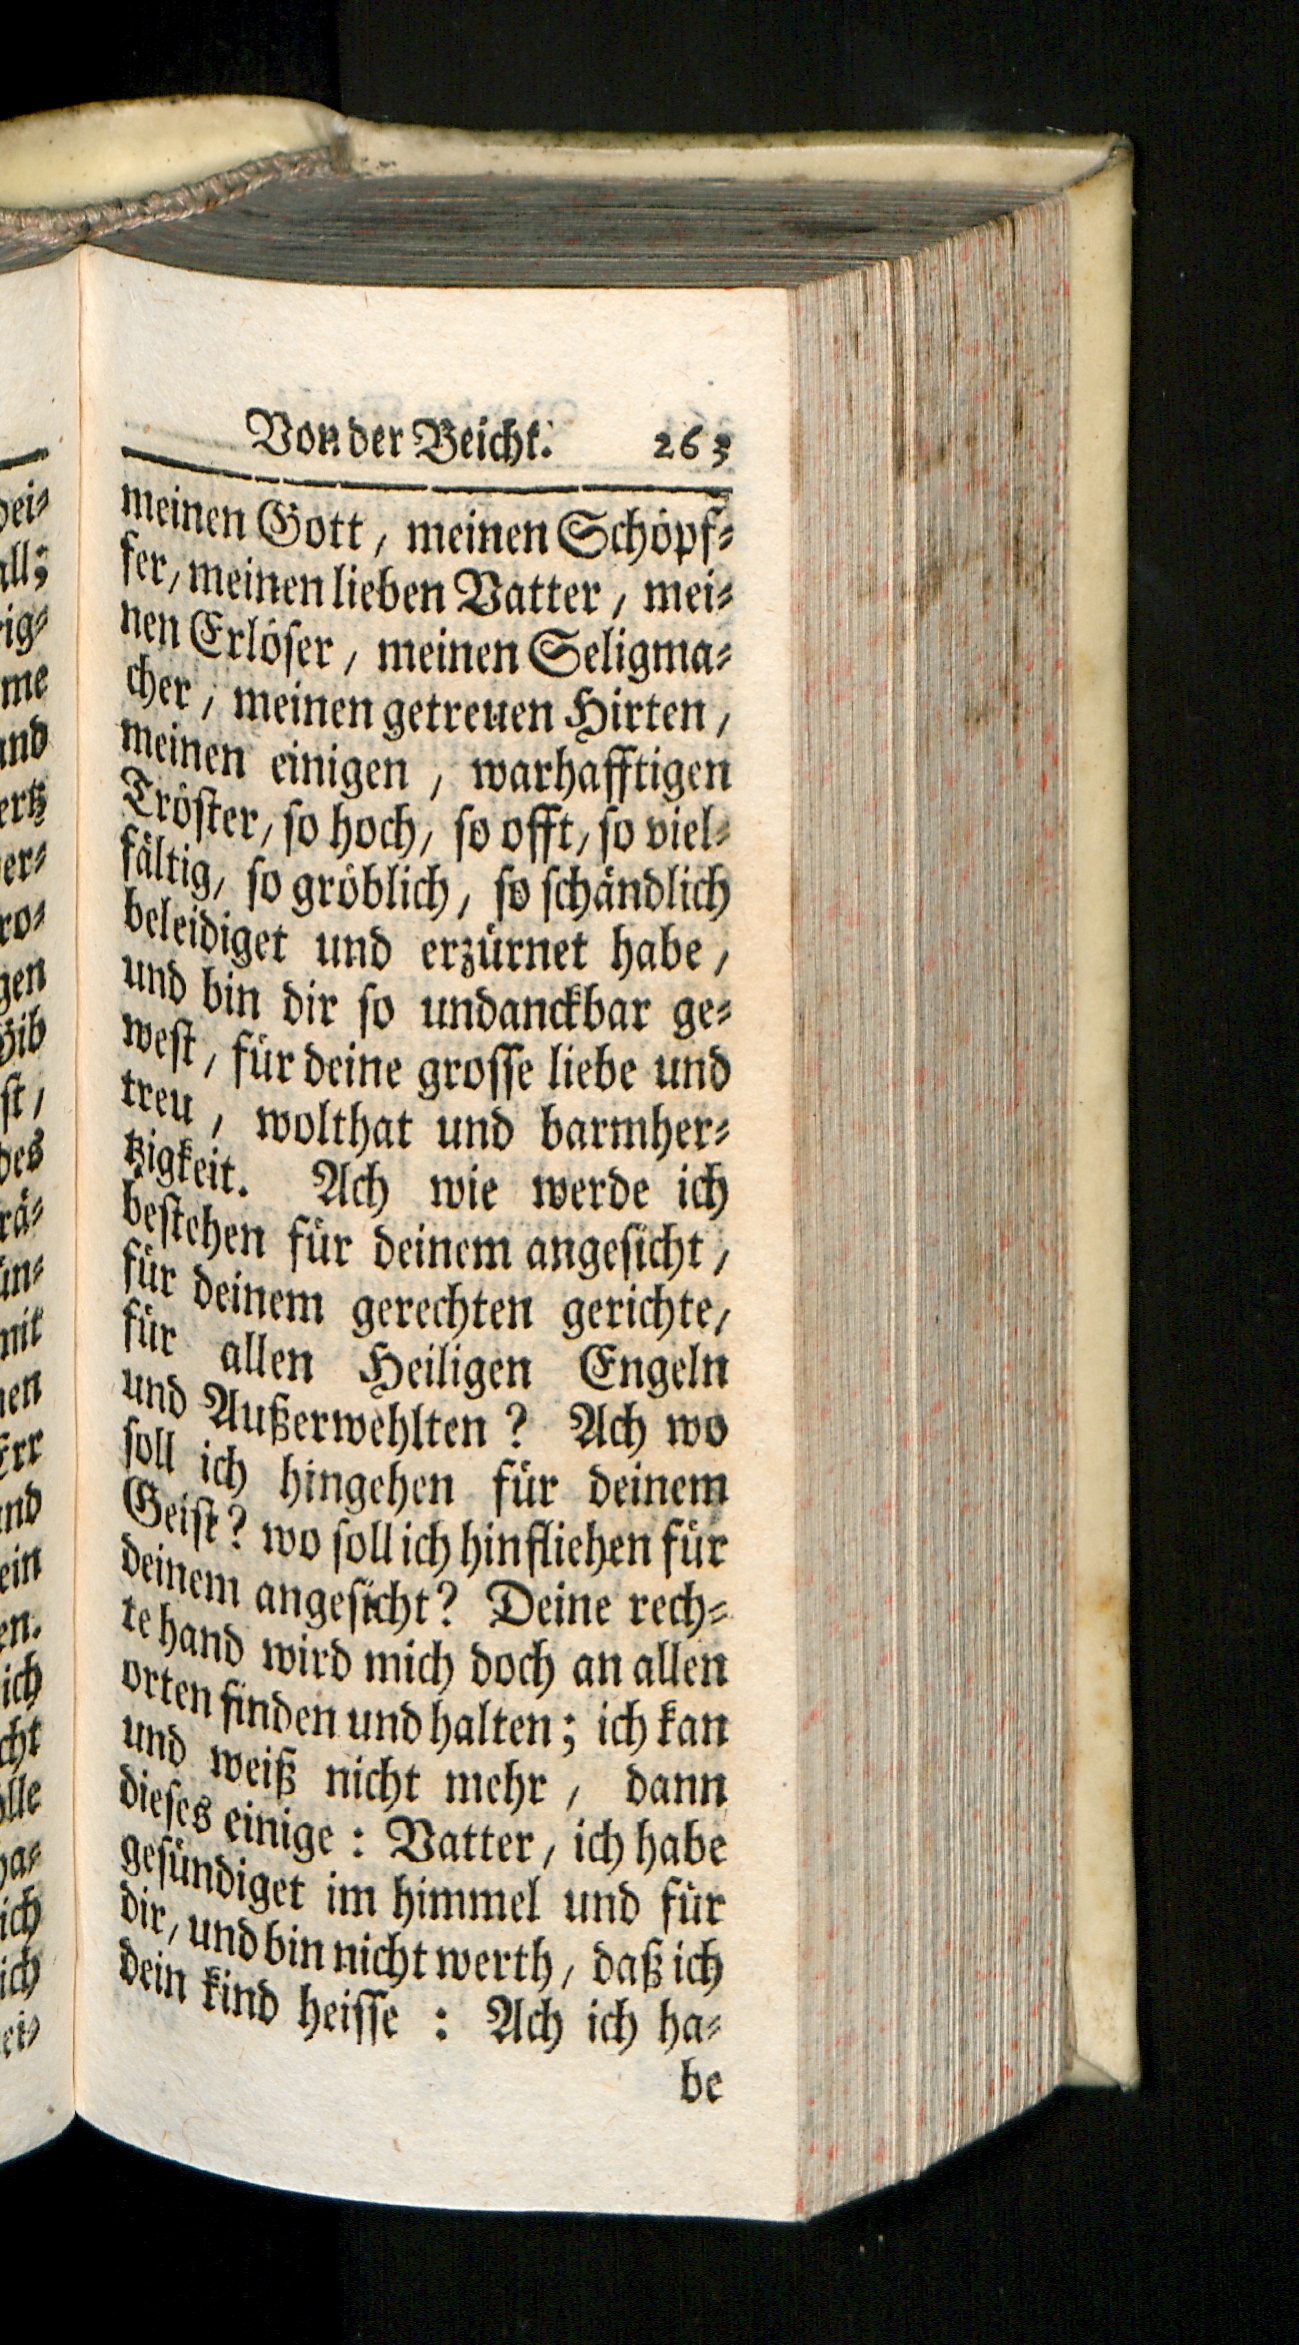 Von der Beicht. 263
meinen Gott / meinen Schöpf⸗
fer / meinen lieben Vatter / mei⸗
nen Erlöser / meinen Seligma⸗
cher / meinen getreuen Hirten /
meinen einigen / warhafftigen
Tröster / so hoch / so offt / so viel⸗
fältig / so gröblich / so schändlich
beleidiget und erzürnet habe /
und bin dir so undanckbar ge⸗
west / für deine grosse liebe und
treu / wolthat und barmher⸗
tzigkeit. Ach wie werde ich
bestehen für deinem angesicht /
für deinem gerechten gerichte /
für allen Heiligen Engeln
und Außerwehlten? Ach wo
soll ich hingehen für deinem
Geist? wo soll ich hinfliehen für
deinem angesicht? Deine rech⸗
te hand wird mich doch an allen
orten finden und halten; ich kan
und weiß nicht mehr / dann
dieses einige: Vatter / ich habe
gesündiget im himmel und für
dir / und bin nicht werth / daß ich
dein kind heisse: Ach ich ha⸗
be